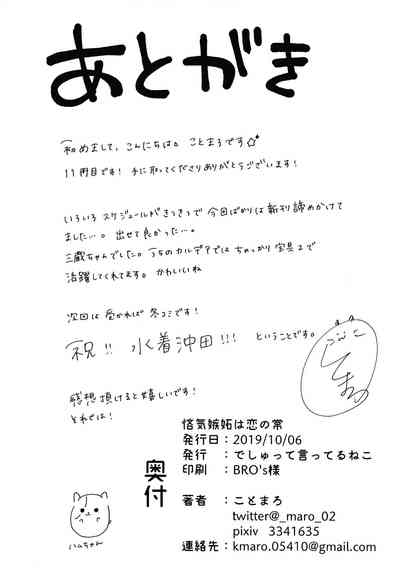 あとがき
初めまして、こんにちは。ことまろです☆
11冊目です! 手に取ってくださりありがとうございます!
いろいろスケジュールがきつきつで今回ばかりは新刊諦めかけて
ました…。出せて良かった…。
三蔵ちゃんでした。うちのカルデアではちゃっかり宝具2で
活躍してくれてます。かわいいね
次回は受かれば冬コミです!
祝!! 水着沖田!!! ということです。
感想頂けると嬉しいです!
それでは!
ことまろ
ハムちゃん
奥付
悋気嫉妬は恋の常
発行日:2019/10/06
発行 :でしゅって言ってるねこ
印刷 :BRO's様
著者 :ことまろ
twitter@_maro_02
pixiv 3341635
連絡先:kmaro.05410@gmail.com